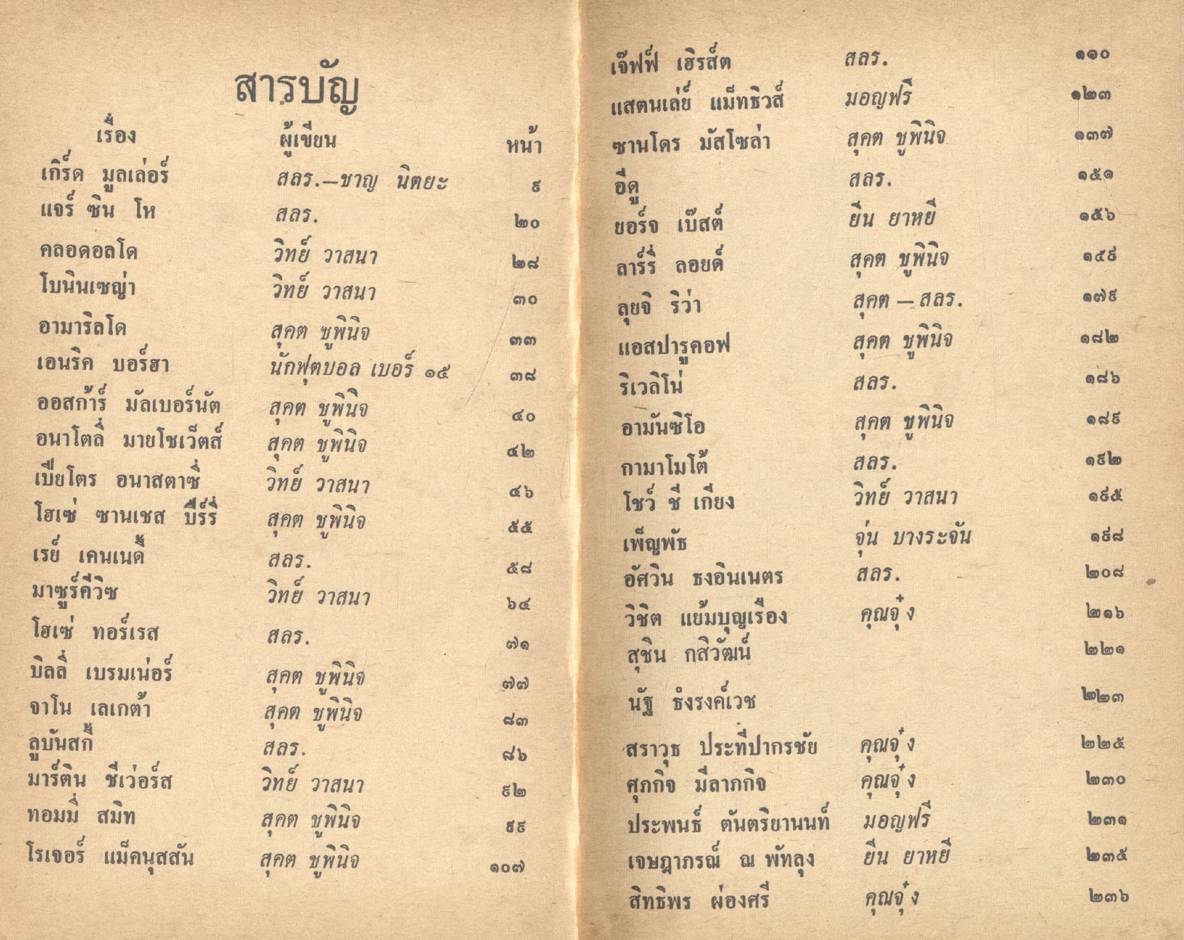 สารบัญ
เรื่อง ผู้เขียน หน้า
เกิร์ด มูลเล่อร์ สลร.—ชาญ นิตยะ ๙
แจร์ ซิน โห สลร. ๒๐
คลอดอลโด วิทย์ วาสนา ๒๘
โบนินเซญ่า วิทย์ วาสนา ๓๐
อามาริลโด สุคต ชูพินิจ ๓๓
เอนริค บอร์ฮา นักฟุตบอล เบอร์ ๑๕ ๓๘
ออสก้าร์ มัลเบอร์นัต สุคต ชูพินิจ ๔๐
อนาโตลี่ มายโชเว็ตส์ สุคต ชูพินิจ ๔๒
เปียโตร อนาสตาซี่ วิทย์ วาสนา ๔๖
โฮเซ่ ซานเชส บีร์รี่ สุคต ชูพินิจ ๕๕
เรย์ เคนเนดี้ สลร. ๕๘
มาซูร์คีวิซ วิทย์ วาสนา ๖๔
โฮเซ่ ทอร์เรส สลร. ๗๑
บิลลี่ เบรมเน่อร์ สุคต ชูพินิจ ๗๗
จาโน เลเกต้า สุคต ชูพินิจ ๘๓
ลูบันสกี้ สลร. ๘๖
มาร์ติน ชีเว่อร์ส วิทย์ วาสนา ๙๒
ทอมมี่ สมิท สุคต ชูพินิจ ๙๙
โรเจอร์ แม็คนุสสัน สุคต ชูพินิจ ๑๐๗
เจ๊ฟฟ์ เฮิรส์ต สลร. ๑๑๐
แสตนเล่ย์ แม็ทธิวส์ มอญฟรี ๑๒๓
ซานโดร มัสโซล่า สุคต ชูพินิจ ๑๓๗
อีดู สลร. ๑๕๑
ยอร์จ เบ๊สต์ ยีน ยาหยี ๑๕๖
ลาร์รี่ ลอยด์ สุคต ชูพินิจ ๑๕๙
ลุยจิ ริว่า สุคต — สลร. ๑๗๙
แอสปารูคอฟ สุคต ชูพินิจ ๑๘๒
ริเวลิโน่ สลร. ๑๘๖
อามันซิโอ สุคต ชูพินิจ ๑๘๙
กามาโมโต้ สลร. ๑๙๒
โชว์ ชี เกียง วิทย์ วาสนา ๑๙๕
เพ็ญพัธ จุ่น บางระจัน ๑๙๘
อัศวิน ธงอินเนตร สลร. ๒๐๘
วิชิต แย้มบุญเรือง คุณจุ๋ง ๒๑๖
สุชิน กสิวัฒน์ ๒๒๑
นัฐ ธำรงค์เวช ๒๒๓
สราวุธ ประทีปากรชัย คุณจุ๋ง ๒๒๕
ศุภกิจ มีลาภกิจ คุณจุ๋ง ๒๓๐
ประพนธ์ ตันตริยานนท์ มอญฟรี ๒๓๑
เจษฎาภรณ์ ณ พัทลุง ยีน ยาหยี ๒๓๕
สิทธิพร ผ่องศรี คุณจุ๋ง ๒๓๖